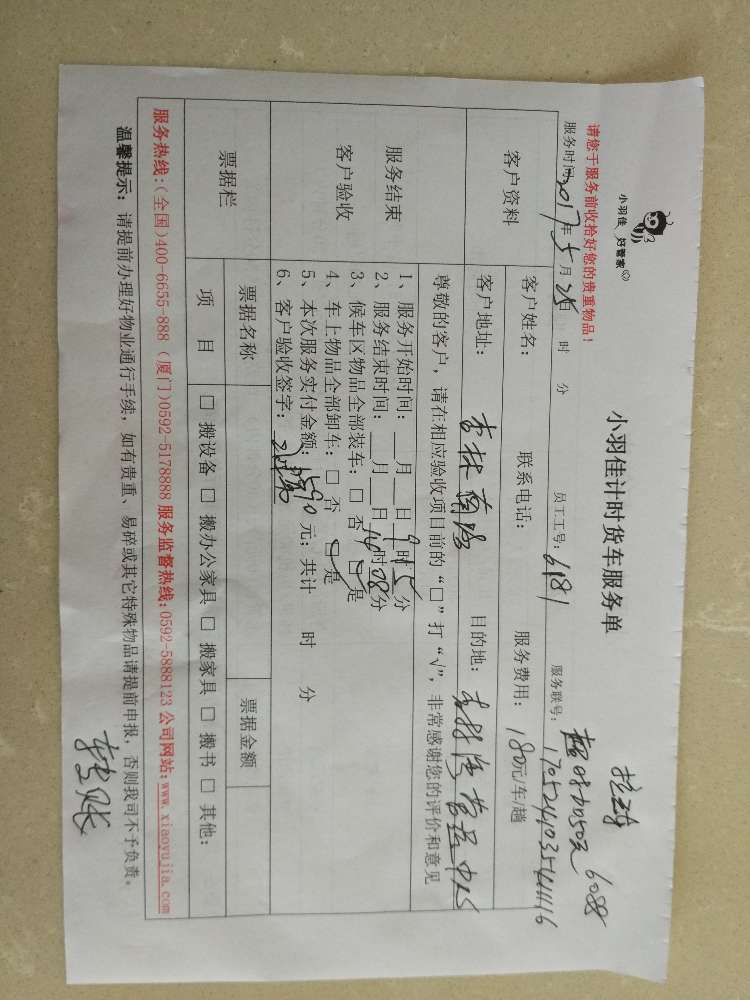 小羽佳 好管家
小羽佳计时货车服务单
请您于服务前收拾好您的贵重物品!
6088
17052410354411116
服务时间:2017年5月25日 时 分 员工工号:6181 服务联号:
客户资料
客户姓名: 联系电话: 服务费用: 180元/车/趟
客户地址: 杏林南路 目的地:
尊敬的客户,请在相应验收项目前的“□”打“√”,非常感谢您的评价和意见
服务结束
客户验收
1、服务开始时间: 月 日9时15分
2、服务结束时间: 月 日14时08分
3、候车区物品全部装车:□ 否 □ 是
4、车上物品全部卸车:□ 否 □ 是
5、本次服务实付金额:1590元;共计 时 分
6、客户验收签字:
票据栏
票据名称 票据金额
项 目 □ 搬设备 □ 搬办公家具 □ 搬家具 □ 搬书 □ 其他:
服务热线:(全国)400-6655-888 (厦门)0592-5178888 服务监督热线:0592-5888123 公司网站:www.xiaoyujia.com
温馨提示:请提前办理好物业通行手续,如有贵重、易碎或其它特殊物品请提前申报,否则我司不予负责。